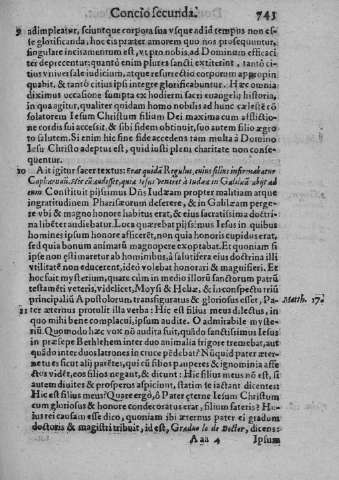 Concio secunda. 743
9 adimpleatur, sciuntque corpora sua vsque ad id tempus non es-
se glorificanda, hoc eis præter amorem quo nos prosequuntur,
singulare incitamentum est, vt pro nobis ad Dominum efficaci
ter deprecentur: quantò enim plures sancti extiterint, tantò ci-
tius vniuersale iudicium, atque resurrectio corporum appropin
quabit, & tantò citius ipsi integre glorificabuntur. Hæc omnia
diximus occasione sumpta ex hodierni sacri euangelij historia,
in qua agitur, qualiter quidam homo nobilis ad hunc cælestē cō
solatorem Iesum Christum filium Dei maxima cum afflictio-
ne cordis sui accessit, & sibi fidem obtinuit, suo autem filio ægro
to salutem. Si enim hic sine fide accedens tam multa à Domino
Iesu Christo adeptus est, quid iusti pleni charitate non conse-
quentur.
10 Ait igitur sacer textus: Erat quidā Regulus, cuius filius infirmabatur
Capharnaū. Hic cū audisset, quia Iesus veniret à Iudæa in Galilæā abijt ad
eum Constituit pijssimus Dñs Iudæam propter malitiam atque
ingratitudinem Pharisæorum deserere, & in Galilæam perge-
re vbi & magno honore habitus erat, & eius sacratissima doctri-
na libēter audiebatur. Loca quærebat pijssimus Iesus in quibus
homines ipsum honore afficerēt, non quia honoris cupidus erat,
sed quia bonum animarū magnopere exoptabat. Et quoniam si
ipse non æstimaretur ab hominibus, à salutifera eius doctrina illi
vtilitatē non educerent, ideò volebat honorari & magnifieri. Et
hoc fuit mysterium, quare cùm in medio illorū sanctorum patrū
testamēti veteris, videlicet, Moysi & Heliæ, & in conspectu triū
principaliū Apostolorum, transfiguratus & gloriosus esset, Pa- Matth. 17.
11 ter æternus protulit illa verba: Hic est filius meus dilectus, in
quo mihi bene complacui, ipsum audite. O admirabile myste-
riū. Quomodo hæc vox nō audita fuit, quādo sanctissimus Iesus
in præsepe Bethlehem inter duo animalia frigore tremebat, aut
quādo inter duos latrones in cruce pēdebat? Nūquid pater æter-
ne tu es sicut alij parētes, qui cū filios paupers & ignominia affe
ctos vidēt, eos filios negant, & dicunt: Hic filius meus nō est, si
autem diuites & prosperos aspiciunt, statim se iactant dicentes:
Hic est filius meus? Quare ergò, ô Pater æterne Iesum Christum
cum gloriosus & honore condecoratus erat, filium fateris? Hu-
ius rei causam esse dico, quoniam ibi æternus pater ei gradum
doctoris & magistri tribuit, id est, Graduo le de Doctor, dicens:
Aaa 4 Ipsum